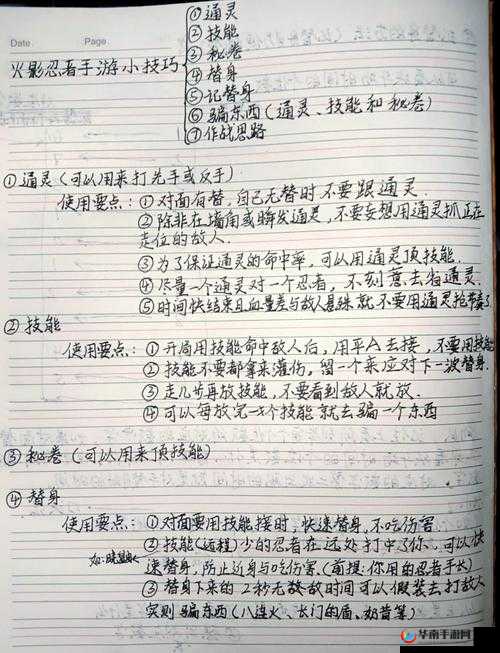 Date Page
火影忍者手游小技巧
①通灵
②技能
③秘卷
④替身
⑤记替身
⑥骗东西(通灵、技能和秘卷)
⑦作战思路
①通灵(可以用来打先手或反手)
使用要点:①对面有替,自己无替时不要跟通灵.
②除非在墙角或瞬发通灵,不要妄想用通灵抓正在
走位的敌人.
③为了保证通灵的命中率,可以用通灵顶技能.
④尽量一个通灵对一个忍者,不刻意去省通灵.
⑤时间快结束且血量差与敌人悬殊就不要用通灵抢节奏了
②技能
使用要点:①开局用技能命中敌人后,用平A去接,不要用技能
②技能不要都拿来灌伤,留一个来应对下一波替身.
③走几步再放技能,不要看到敌人就放.
④可以每放完一个技能就去骗一个东西
③秘卷(可以用来顶技能)
④替身
使用要点:①对面要用技能接时,快速替身,不吃伤害
②技能(远程)少的忍者在远处打中了你,可以快
速替身,防止近身与吃伤害.(前提:你用的忍者手长)
③替身下来的2秒无敌时间可以假装去打敌人
实则骗东西(八连火、长门的盾、奶昔等)
华南手游网